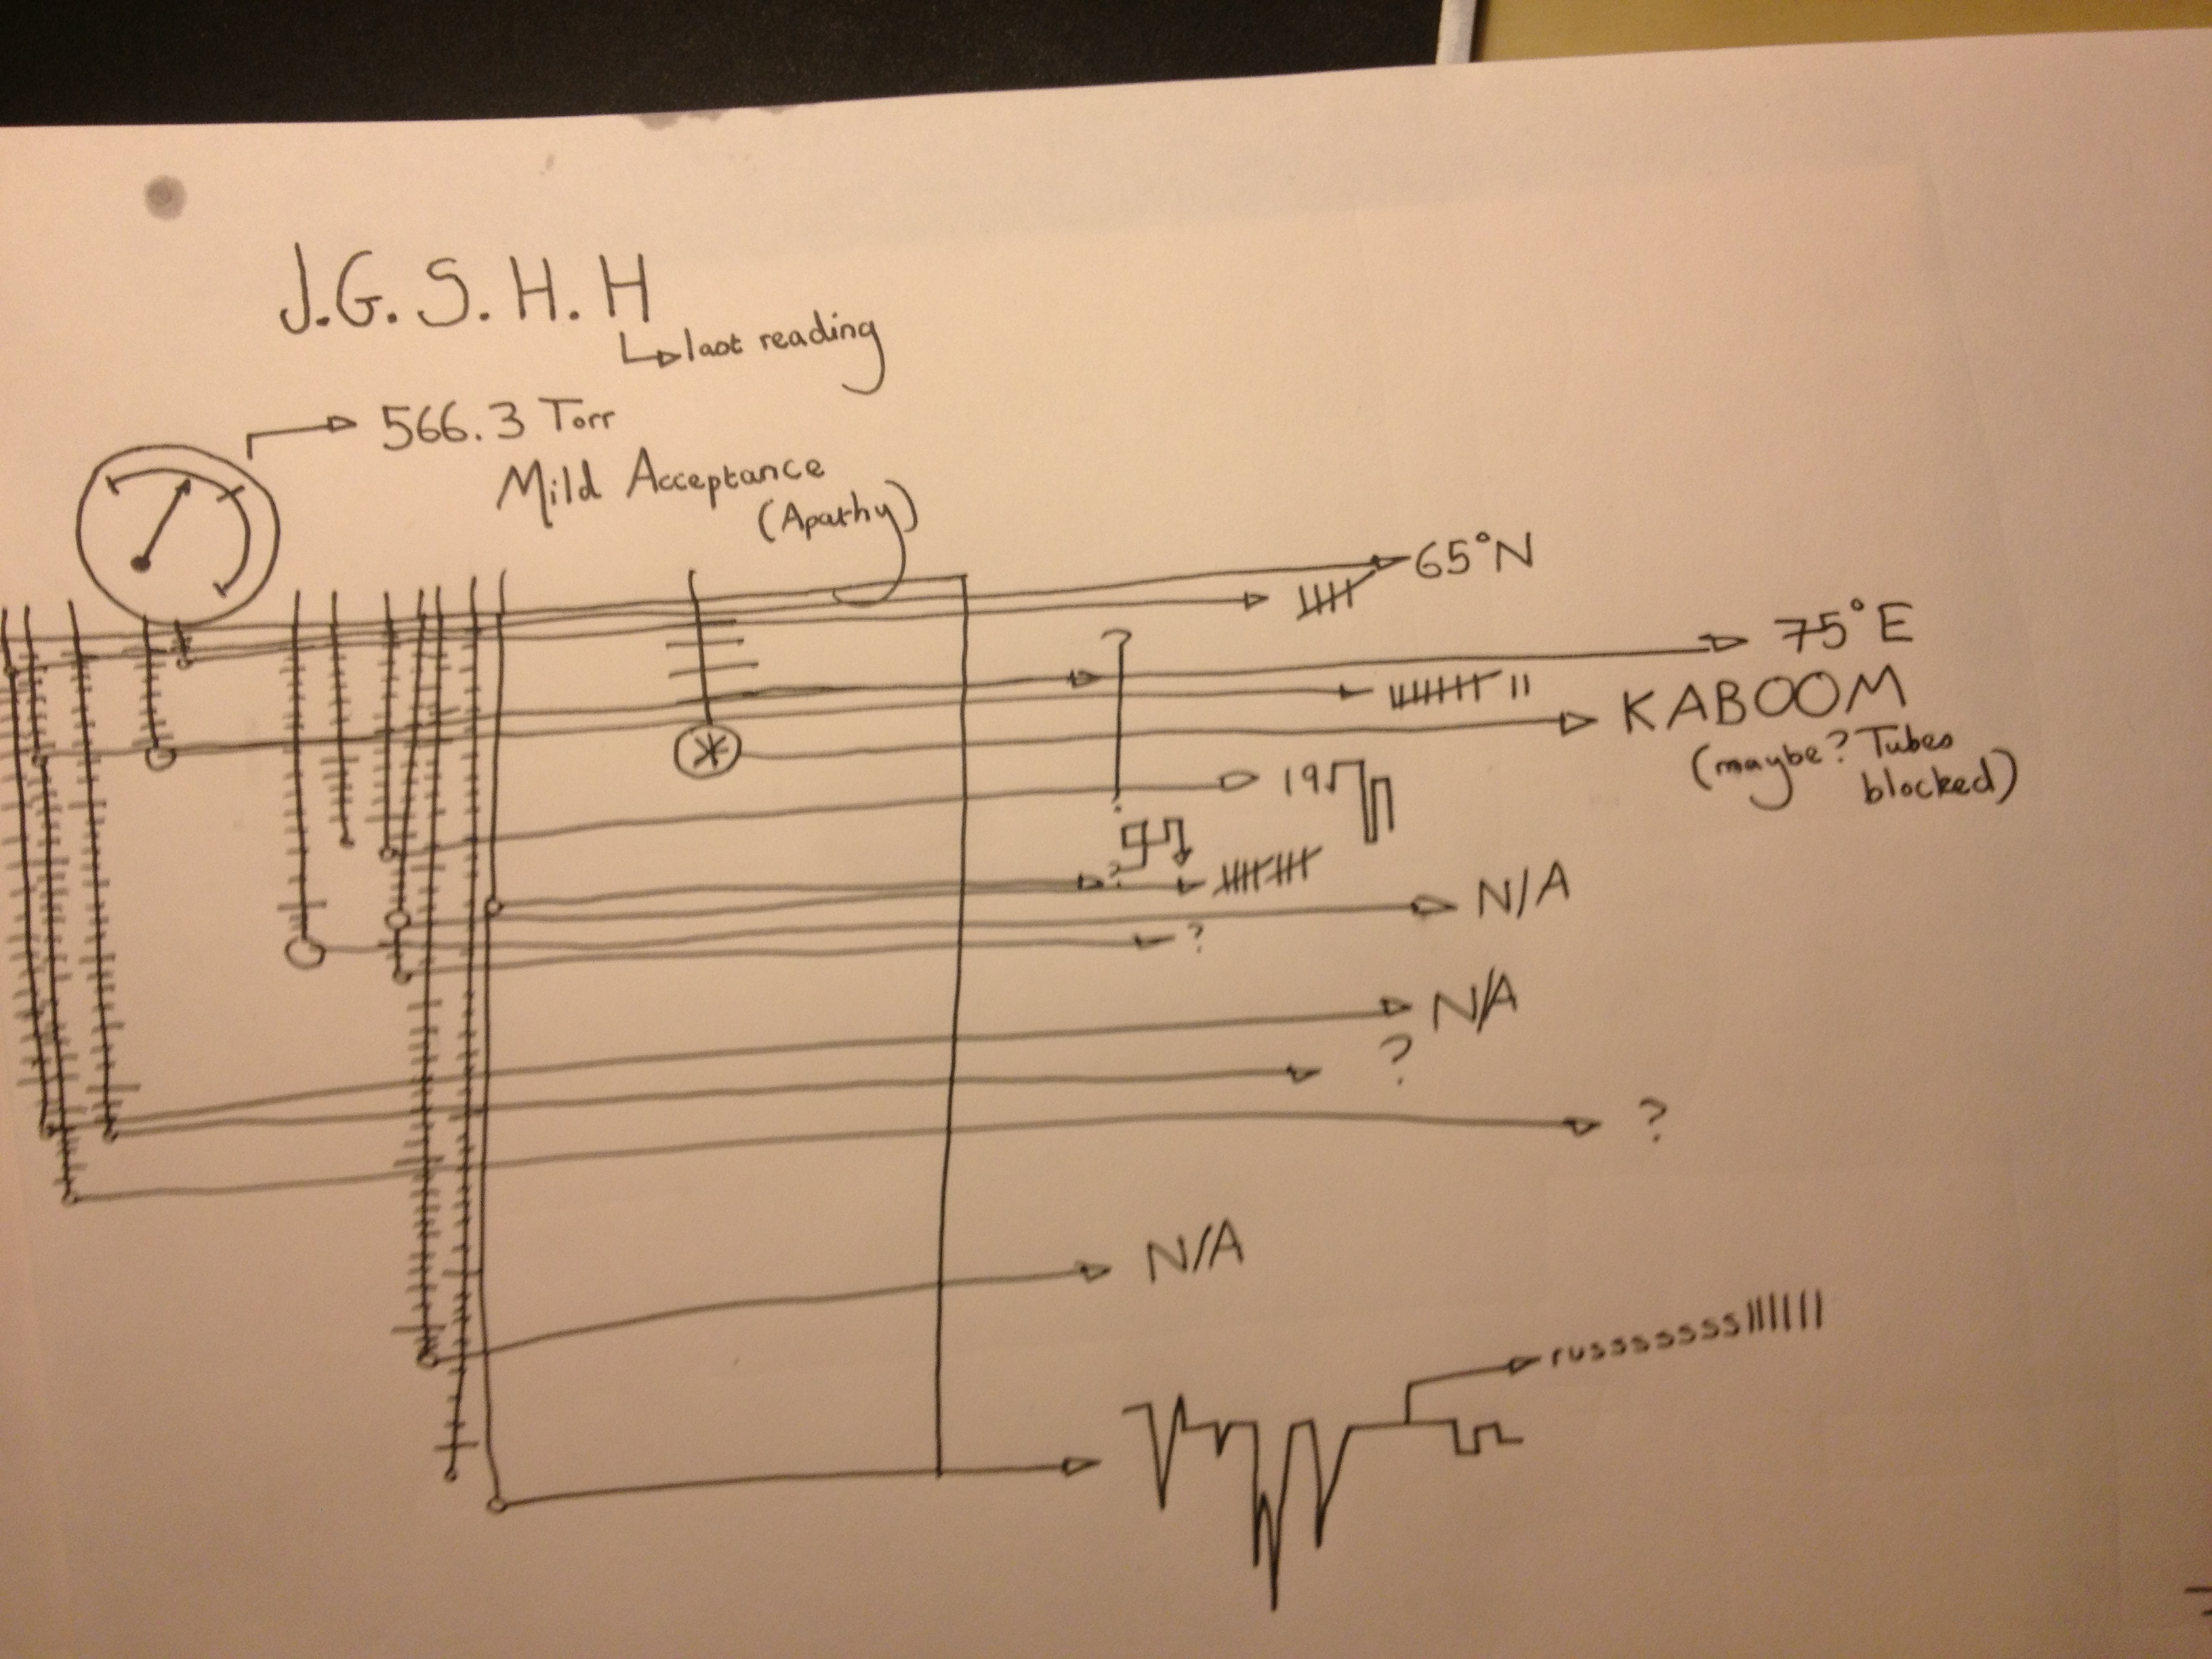 J.G. S. H. H
last reading
566.3 Torr
Mild Acceptance
(Apathy)
65°N
75°E
KABOOM
(maybe? Tubes
blocked)
?
19
?
N/A
?
N/A
?
?
N/A
russsssssllllll